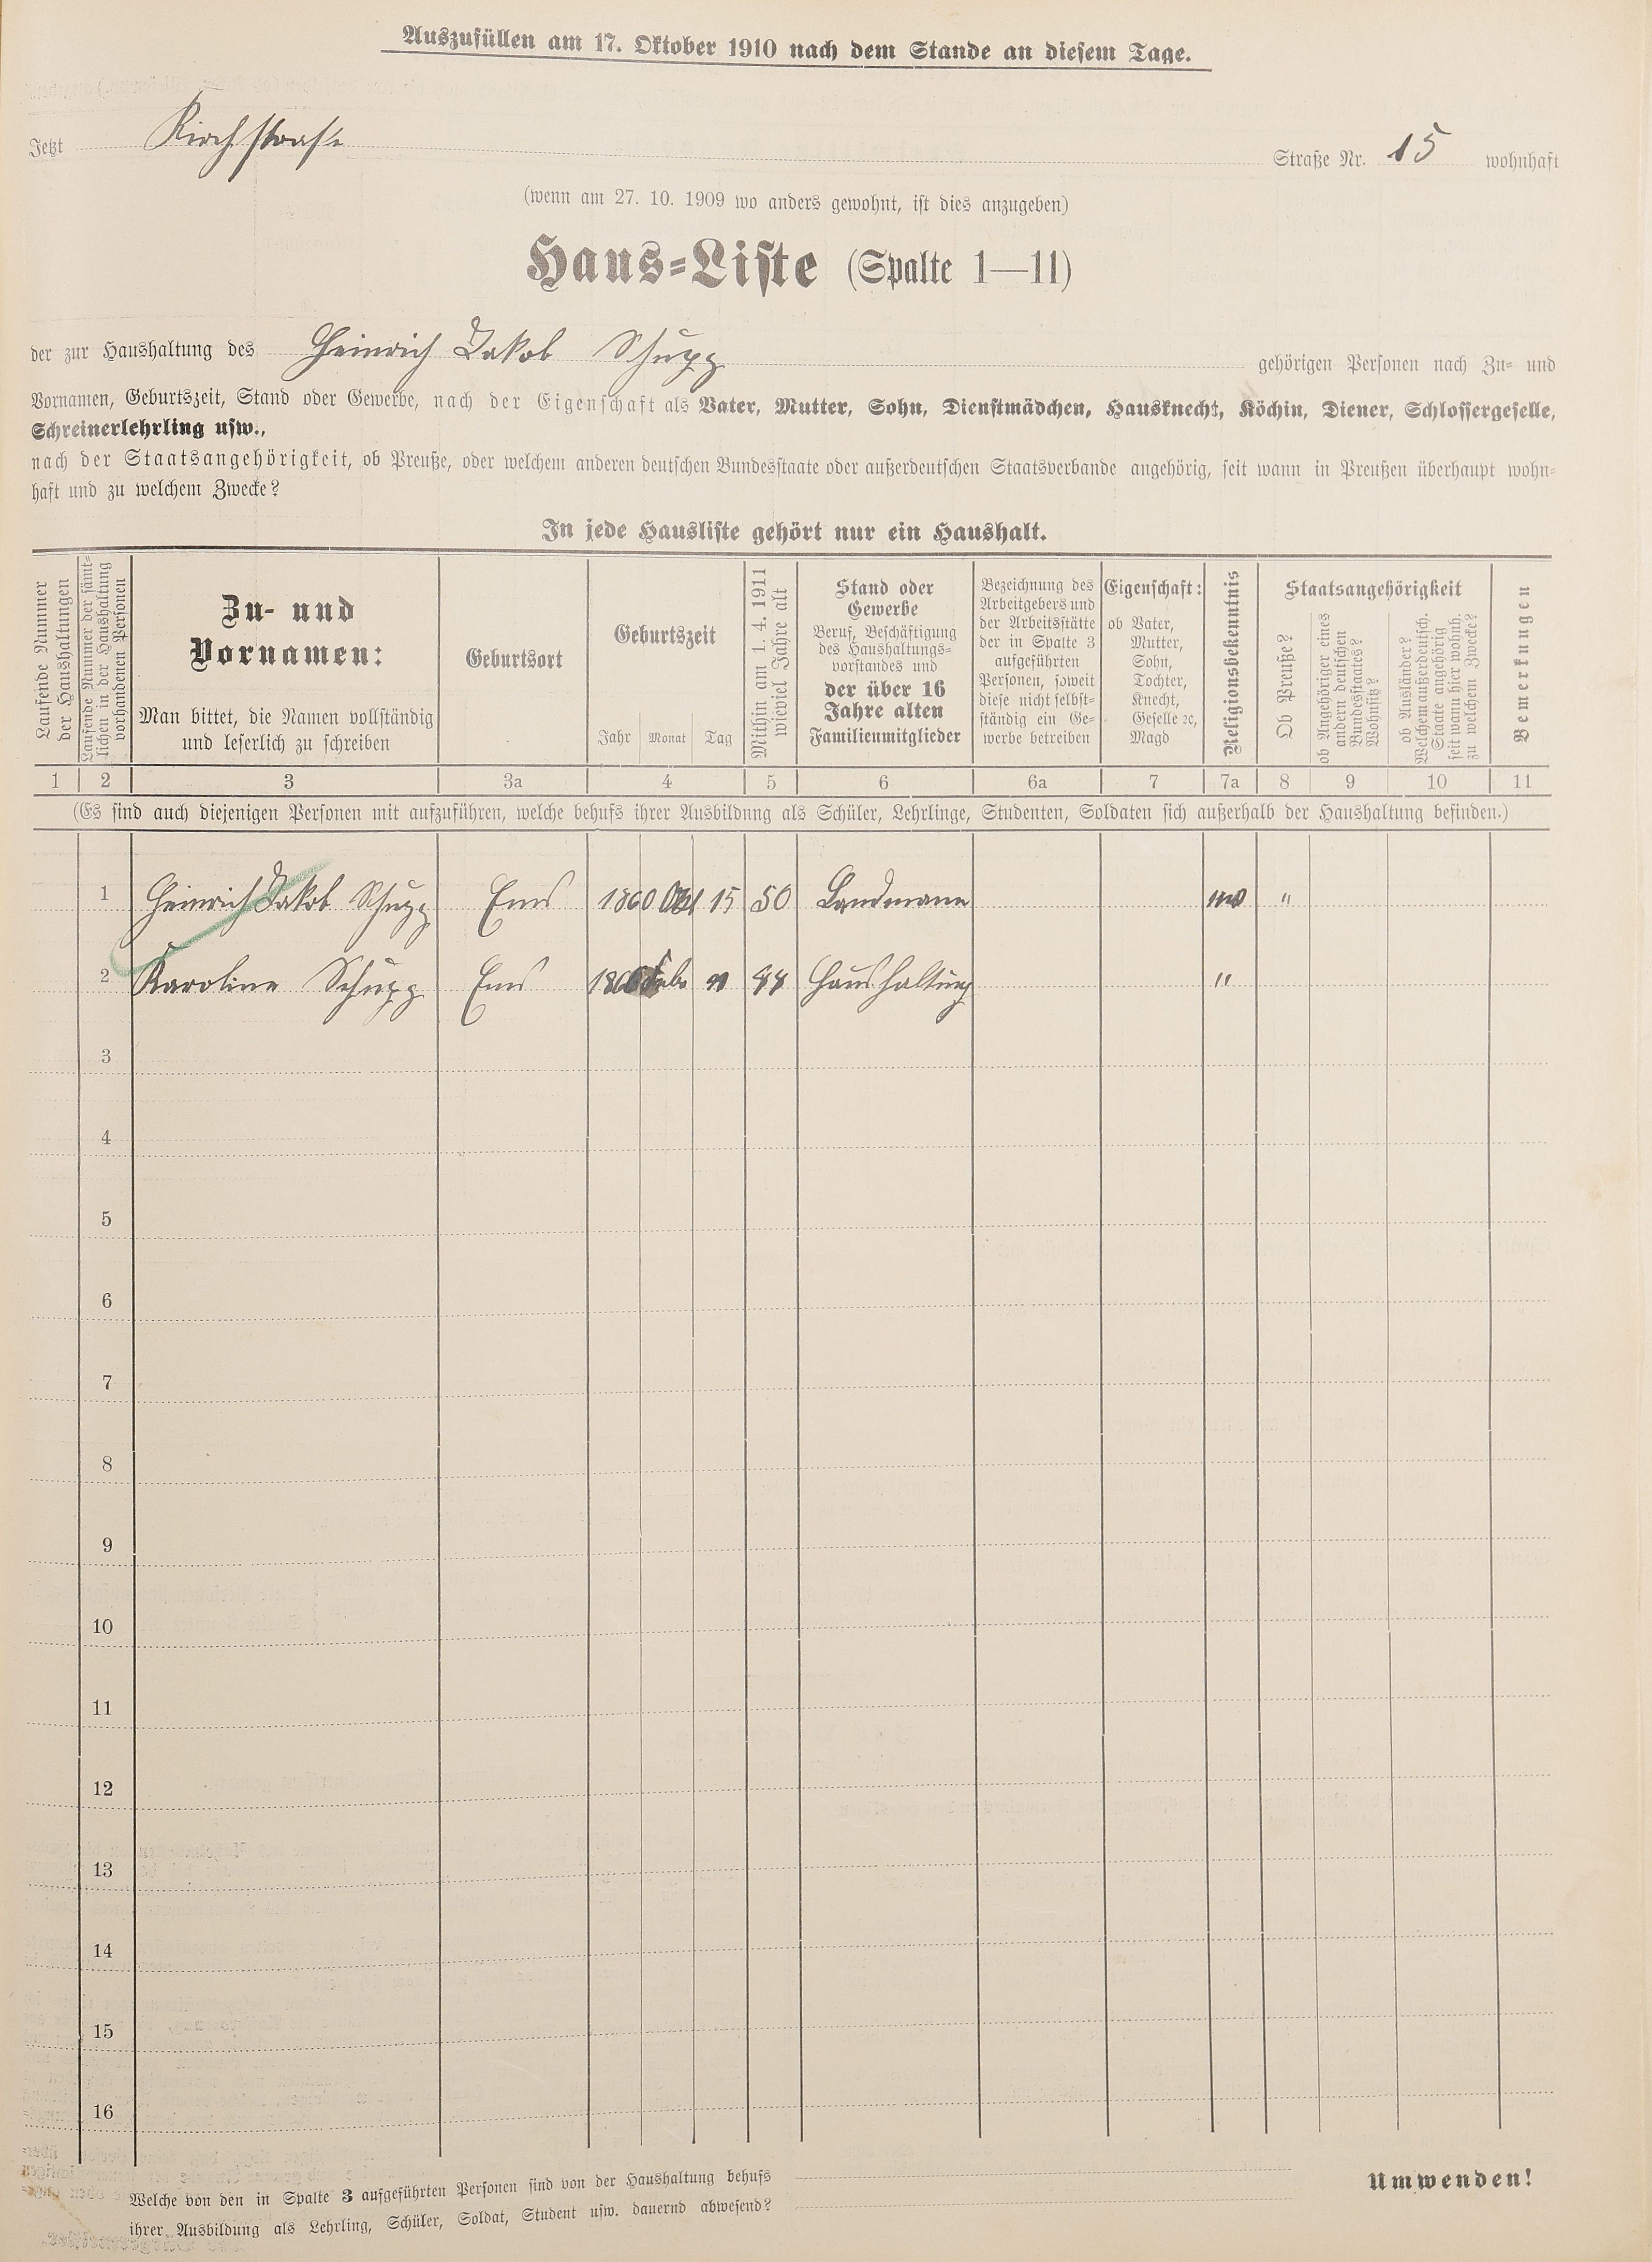 Auszufüllen am 17. Oktober 1910 nach dem Stande an diesem Tage.
Jetzt Kirchstrasse Straße Nr. 15 wohnhaft
(wenn am 27. 10. 1909 wo anders gewohnt, ist dies anzugeben)
Haus-Liste (Spalte 1—11)
der zur Haushaltung des Heinrich Jakob Schupp gehörigen Personen nach Zu- und
Vornamen, Geburtszeit, Stand oder Gewerbe, nach der Eigenschaft als Vater, Mutter, Sohn, Dienstmädchen, Hausknecht, Köchin, Diener, Schlossergeselle,
Schreinerlehrling usw.,
nach der Staatsangehörigkeit, ob Preuße, oder welchem anderen deutschen Bundesstaate oder außerdeutschen Staatsverbande angehörig, seit wann in Preußen überhaupt wohn-
haft und zu welchem Zwecke?
In jede Hausliste gehört nur ein Haushalt.
Laufende Nummer
der Haushaltungen
Laufende Nummer der sämt-
lichen in der Haushaltung
vorhandenen Personen
Zu- und
Vornamen:
Man bittet, die Namen vollständig
und leserlich zu schreiben
Geburtsort
Geburtszeit
Jahr Monat Tag
Mithin am 1. 4. 1911
wieviel Jahre alt
Stand oder
Gewerbe
Beruf, Beschäftigung
des Haushaltungs-
vorstandes und
der über 16
Jahre alten
Familienmitglieder
Bezeichnung des
Arbeitgebers und
der Arbeitsstätte
der in Spalte 3
aufgeführten
Personen, soweit
diese nicht selbst-
ständig ein Ge-
werbe betreiben
Eigenschaft:
ob Vater,
Mutter,
Sohn,
Tochter,
Knecht,
Geselle ꝛc,
Magd
Religionsbekenntnis
Staatsangehörigkeit
Ob Preuße?
ob Angehöriger eines
andern deutschen
Bundesstaates?
Wohnsitz?
ob Ausländer?
Welchem außerdeutsch.
Staate angehörig
seit wann hier wohnh.
zu welchem Zwecke?
Bemerkungen
1 2 3 3a 4 5 6 6a 7 7a 8 9 10 11
(Es sind auch diejenigen Personen mit aufzuführen, welche behufs ihrer Ausbildung als Schüler, Lehrlinge, Studenten, Soldaten sich außerhalb der Haushaltung befinden.)
1 Heinrich Jakob Schupp Ems 1860 Okt 15 50 Landmann "
2 Karoline Schupp Ems Febr 44 Haushaltung "
3
4
5
6
7
8
9
10
11
12
13
14
15
16
Welche von den in Spalte 3 aufgeführten Personen sind von der Haushaltung behufs
ihrer Ausbildung als Lehrling, Schüler, Soldat, Student usw. dauernd abwesend?
Umwenden!